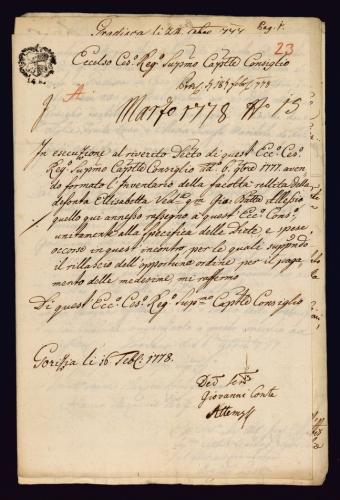 Gradisca li 24 777
Pag. 1.
23
Eccelso Ces.º Reg.º Supmo Capitle Consiglio
A
Marzo 1778 Nº 15
In esecuzione al riverito Dec̄to di quest' Ecc.º Ces.º
Reg.º Supmo Capitle Consiglio 1777. aven
do formato l'Inventario della facoltà rellitta della
defonta Ellisabetta Ved.ª qm Gio. Batta Allessio
quello que annesso rassegno a quest' Ecc.º Cons.º
unitamente alla specifica delle Diete, e spese
occorse in quest' incontro, per le quali supp.do
il rillascio dell' opportuno ordine per il paga
mento delle medesime, mi raffermo
Di quest' Ecc.º Ces.º Reg.º Sup.mo Capitle Consiglio
Gorizia li 16 Feb.º 1778.
Giovanni Conte
Attems